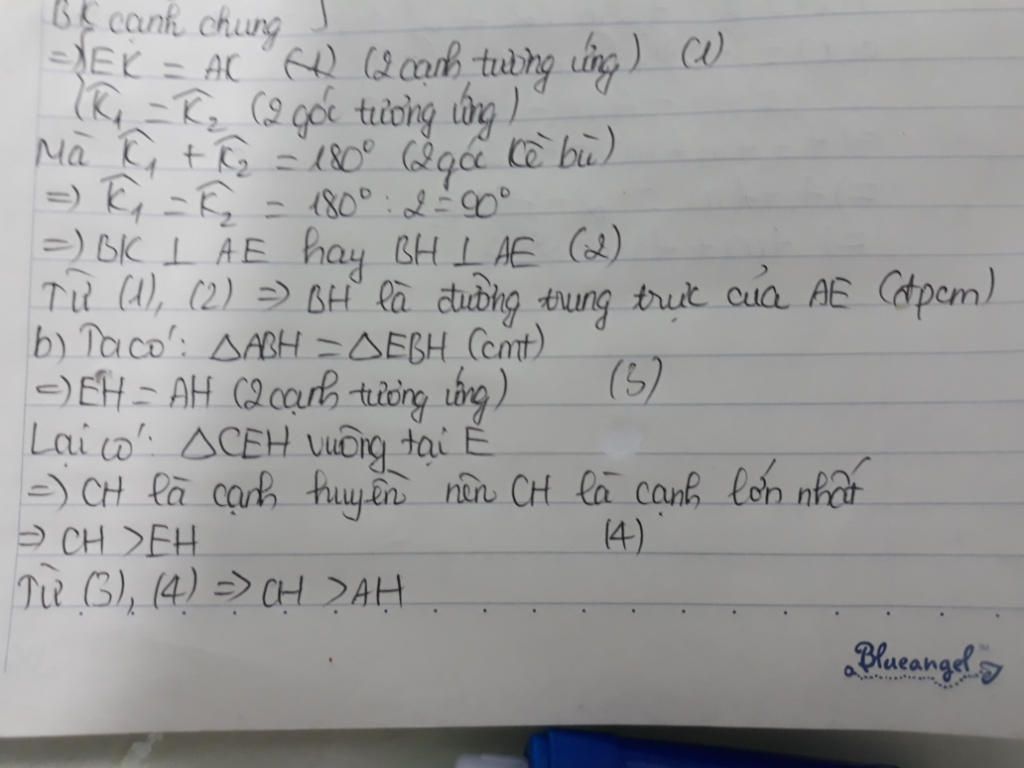 BK cạnh chung }
=> { EK = AK (2 cạnh tương ứng) (1)
{ K̂₁ = K̂₂ (2 góc tương ứng)
Mà K̂₁ + K̂₂ = 180° (2 góc kề bù)
=> K̂₁ = K̂₂ = 180° : 2 = 90°
=> BK ⊥ AE hay BH ⊥ AE (2)
Từ (1), (2) => BH là đường trung trực của AE (đpcm)
b) Ta có: △ABH = △EBH (cmt)
=> EH = AH (2 cạnh tương ứng) (3)
Lại có: △CEH vuông tại E
=> CH là cạnh huyền nên CH là cạnh lớn nhất
=> CH > EH (4)
Từ (3), (4) => CH > AH
Blueangel